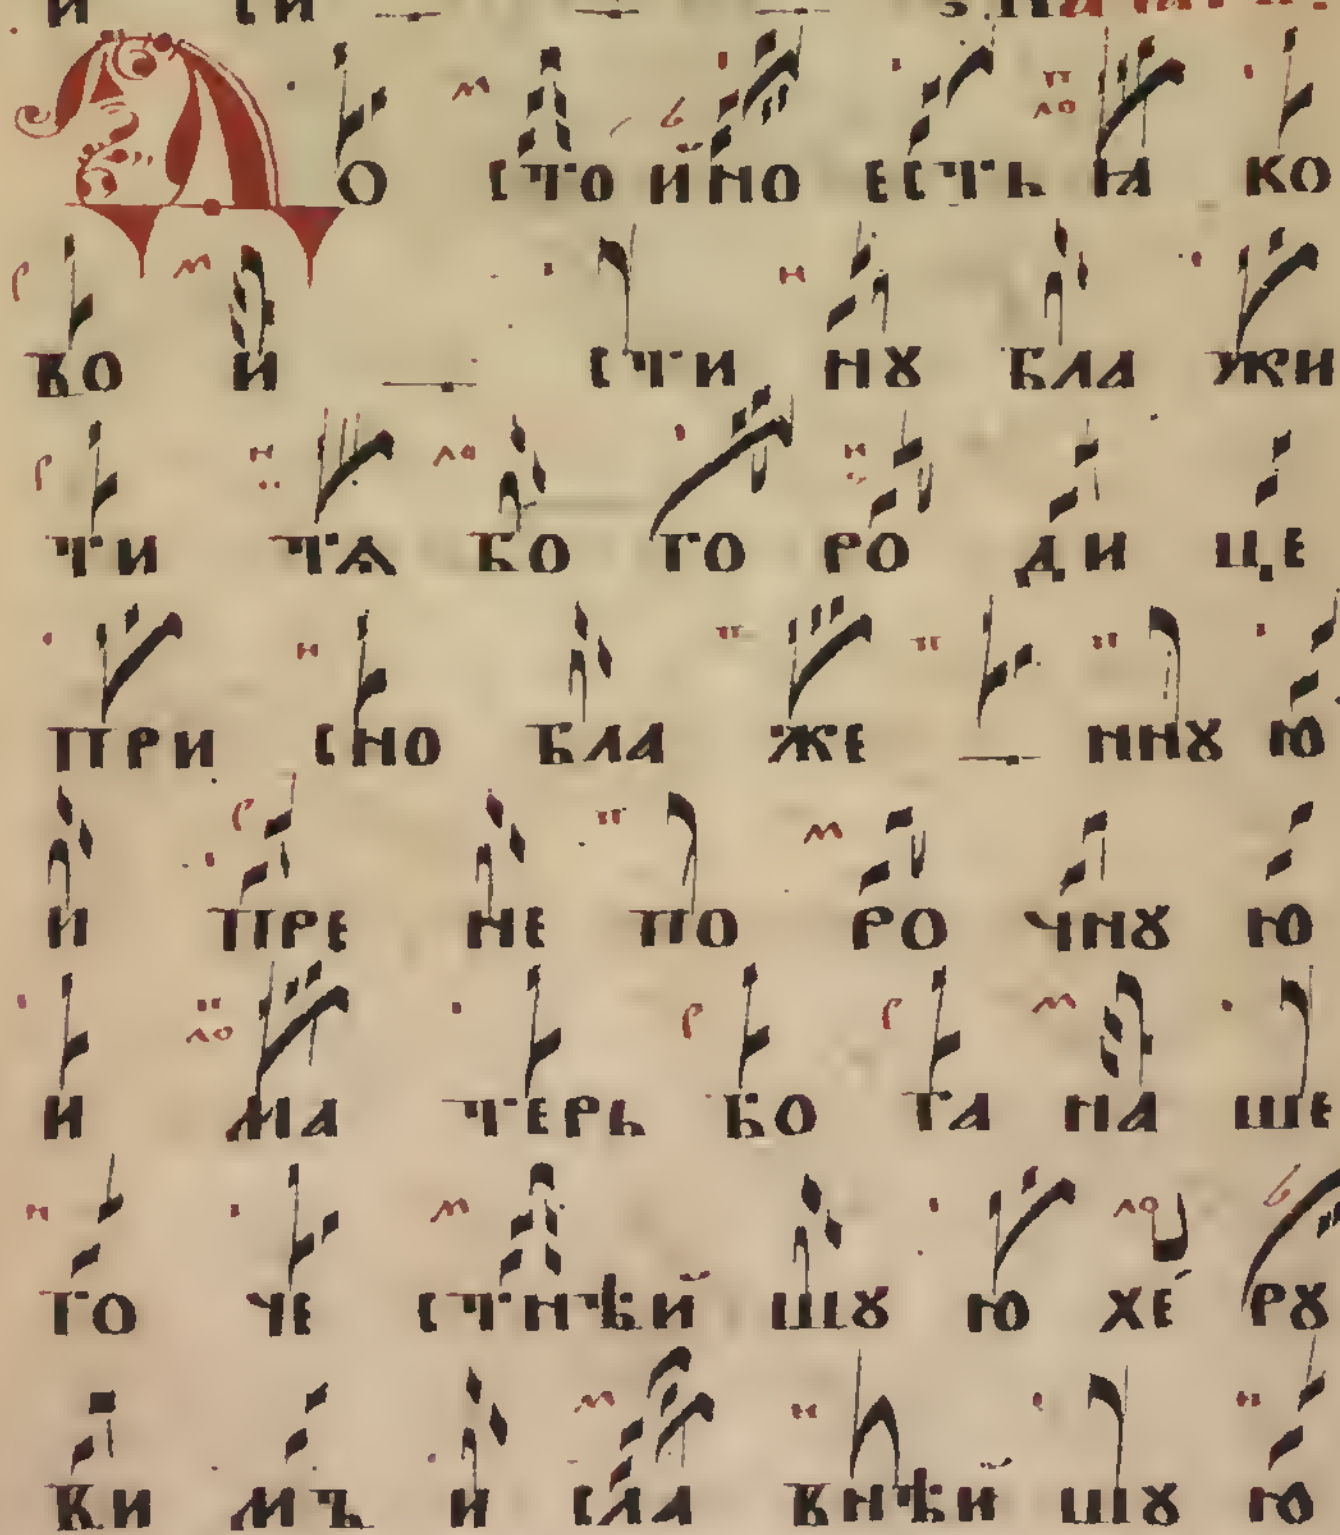 До стойно есть ꙗко
во и стинꙋ блажи
ти тѧ богородице
присно блаженнꙋю
и пренепорочнꙋю
и матерь бога наше
го честнѣйшꙋю херꙋ
вимъ и славнѣйшꙋю